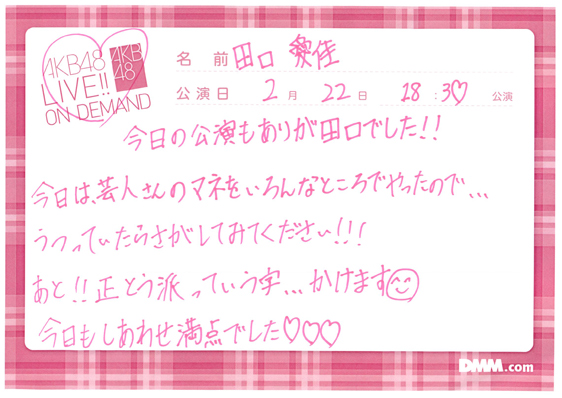 AKB48
LIVE!!
ON DEMAND
AKB
48
名 前 田口 愛佳
公演日 2月 22日 18:30 公演
今日の公演もありが田口でした!!
今日は、芸人さんのマネをいろんなところでやったので...
うつっていたらさがしてみてください!!!
あと!!正とう派っていう字...かけます
今日もしあわせ満点でした♡♡♡
DMM.com